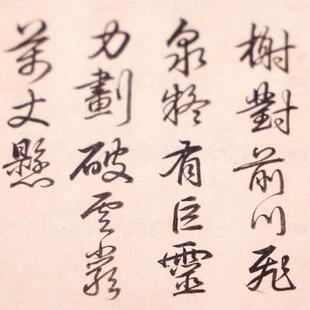 榭對前川飛
泉疑有巨靈
力劃破雲
萬丈懸